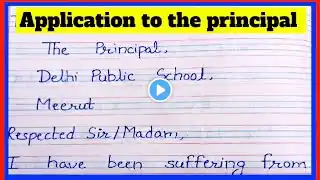 Application to the principal
The Principal,
Delhi Public School,
Meerut
Respected Sir/Madam,
I have been suffering from